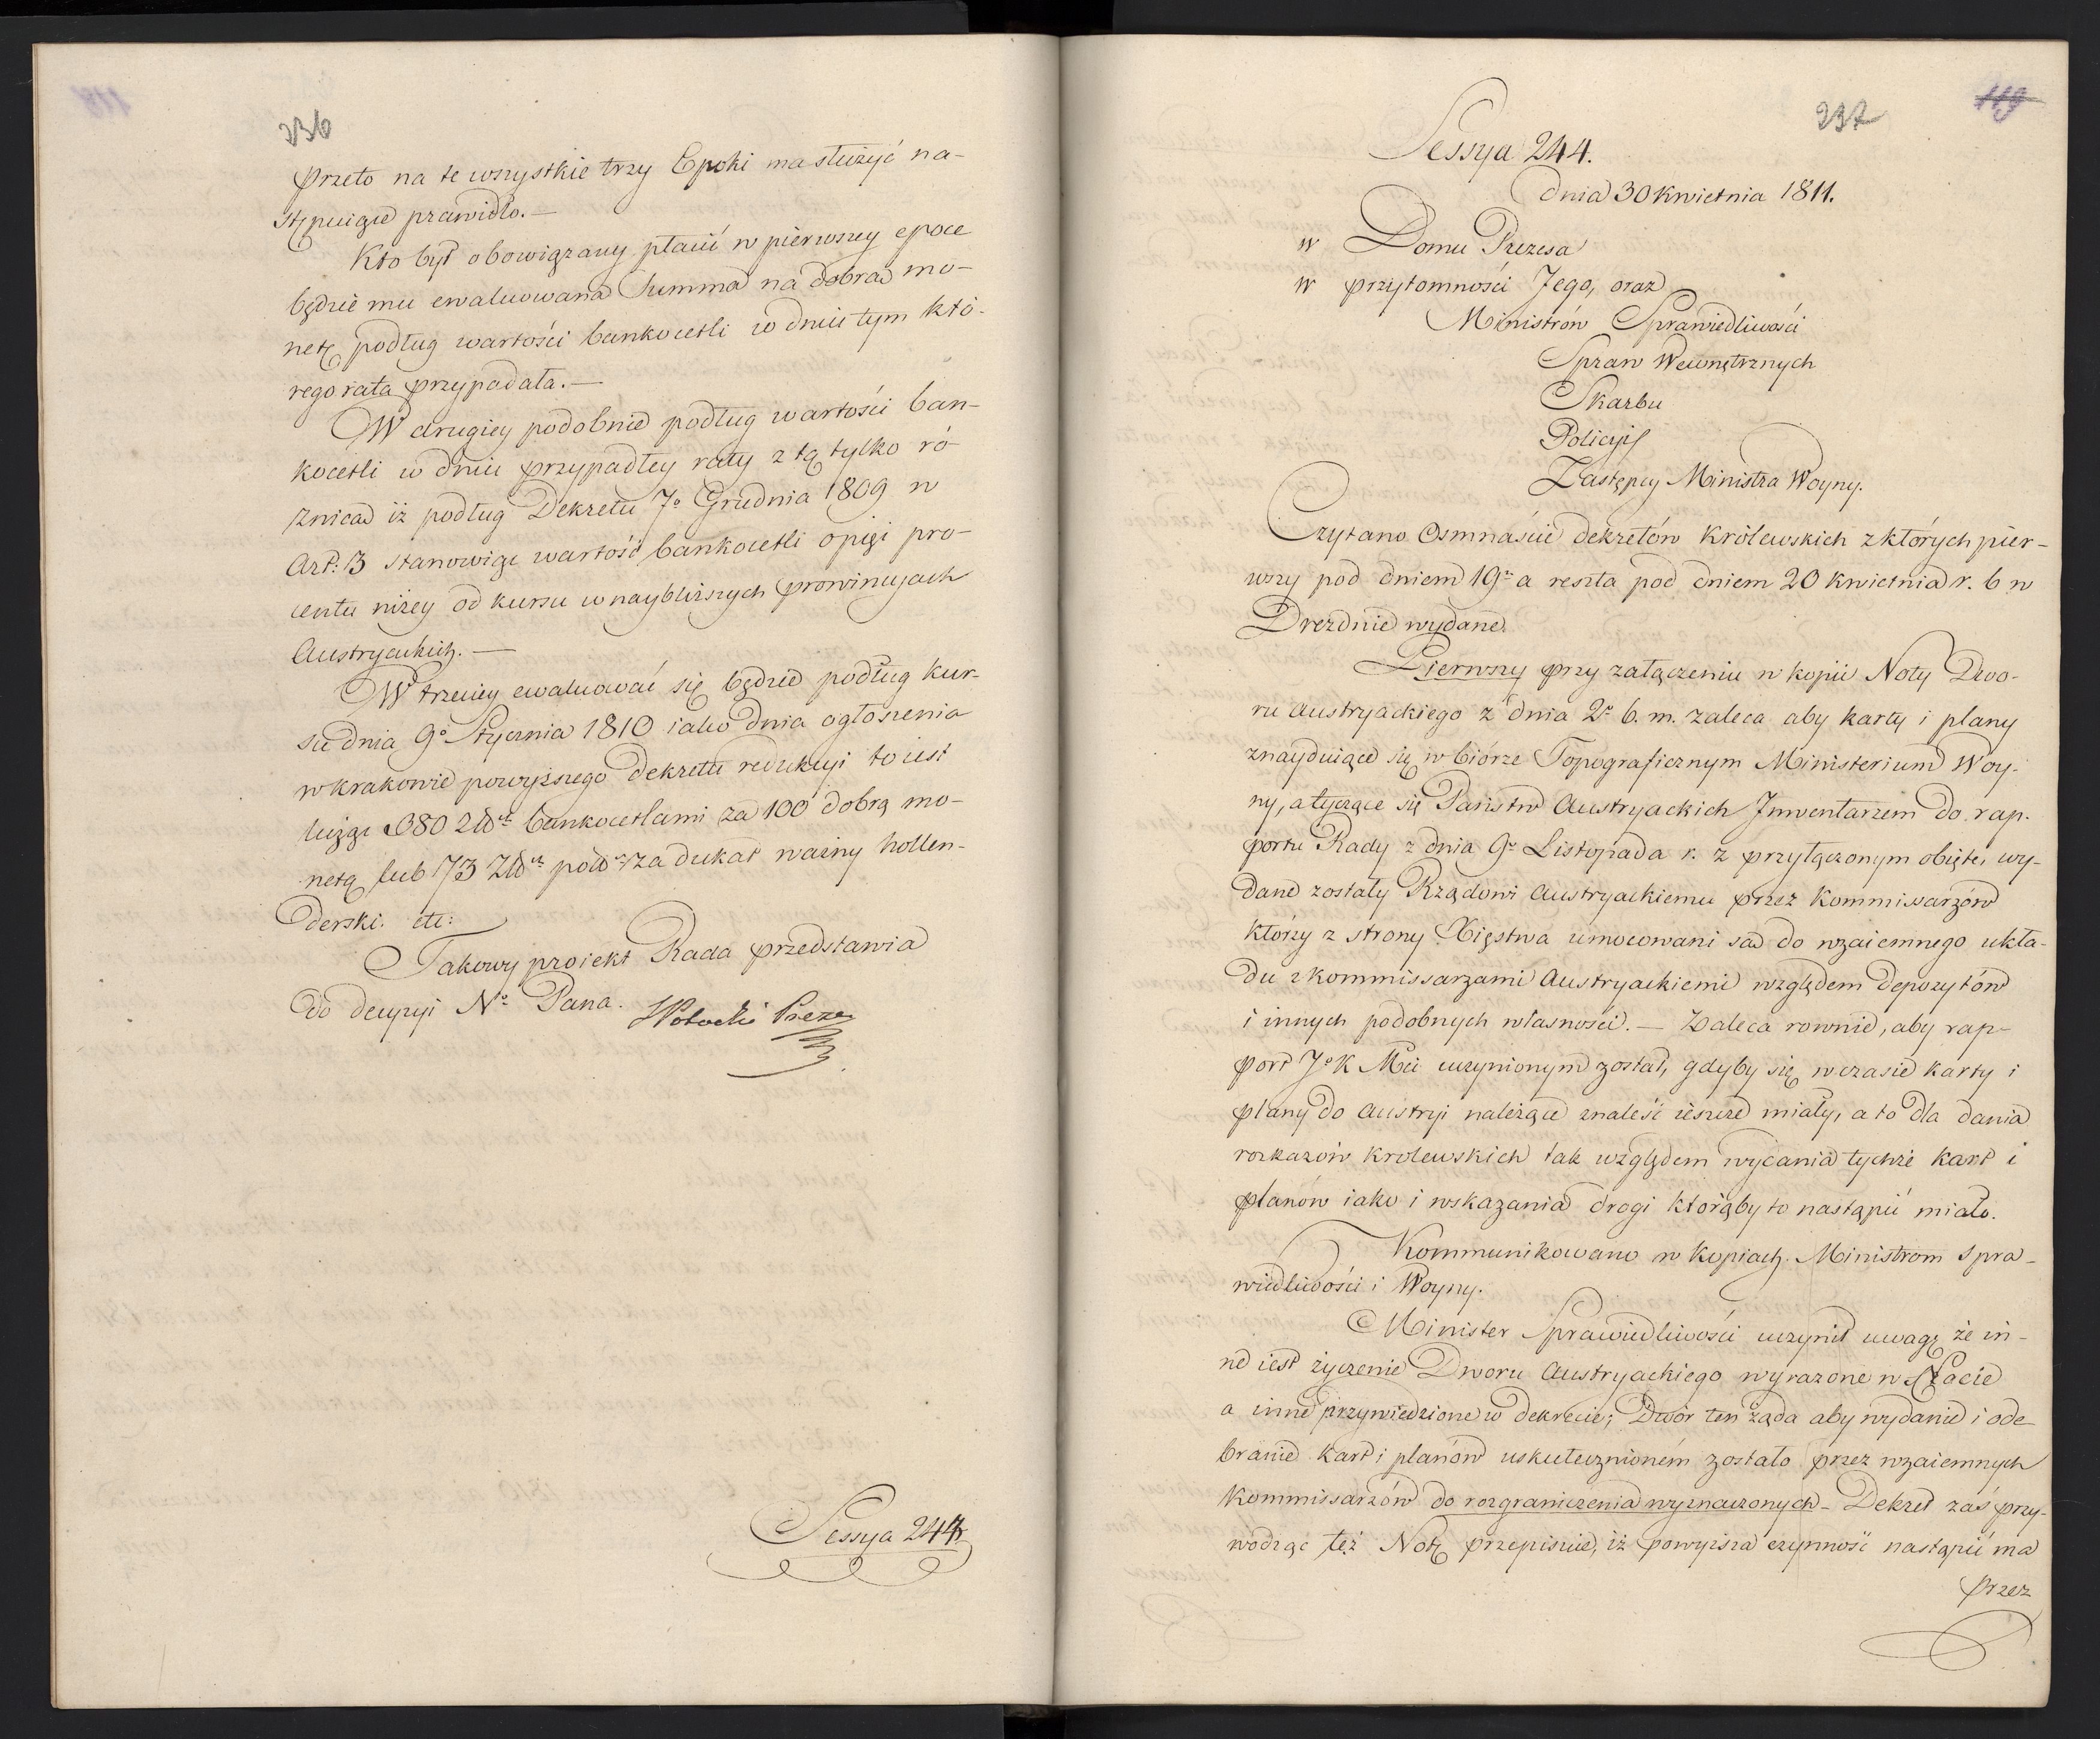 236
przeto na te wszystkie trzy Epoki ma służyć na-
stępuiące prawidło. —
Kto był obowiązany płacić w pierwszey epoce
będzie mu ewaluowana Summa na dobrą mo-
netę podług wartości bankocetli w dniu tym któ-
rego rata przypadała. —
W drugiey podobnie podług wartości ban-
kocetli w dniu przypadłey raty z tą tylko ró
żnicą iż podług Dekretu 7º Grudnia 1809 w
Art: 13 stanowiąc wartość bankocetli o pięć pro-
centu niżey od kursu w naybliższych prowincyach
Austryackich. —
W trzeciey ewaluować się będzie podług kur-
su dnia 9º Stycznia 1810 iako dnia ogłoszenia
w krakowie powyższego dekretu redukcyi to iest
licząc 380 Złł bankocetlami za 100 dobrą mo-
netą lub 73 Złł za dukat ważny hollen-
derski. etc:
Takowy proiekt Rada przedstawia
do decyzyi Nº Pana. Potocki Prezes
Sessya 244
237
119
Sessya 244.
dnia 30 Kwietnia 1811.
w Domu Prezesa
w przytomności Jego, oraz
Ministrów Sprawiedliwości
Spraw Wewnętrznych
Skarbu
Policyi
Zastępcy Ministra Woyny.
Czytano Osmnaście dekretów Królewskich z których pier-
wszy pod dniem 19º a reszta pod dniem 20 kwietnia r. b w
Dreznie wydane.
Pierwszy przy załączeniu w kopii Noty Dwo-
ru Austryackiego z dnia 2º b. m. zaleca aby karty i plany
znayduiące się w biórze Topograficznym Ministerium Woy-
ny, a tyczące się Państw Austryackich Inwentarzem do rap-
portu Rady z dnia 9º Listopada r. z przyłączonym obięte, wy-
dane zostały Rządowi Austryackiemu przez Kommissarzów
którzy z strony Xięstwa umocowani są do wzaiemnego ukła-
du z kommissarzami Austryackiemi względem depozytów
i innych podobnych własności. — Zaleca rownie, aby rap-
port Jº K Mci uczynionym został, gdyby się w czasie karty i
plany do Austryi należące znaleść ieszcze miały, a to dla dania
rozkazów królewskich tak względem wydania tychże kart i
planów iako i wskazania drogi którąby to nastąpić miało.
Kommunikowano w kopiach Ministrom Spra-
wiedliwości i Woyny.
Minister Sprawiedliwości uczynił uwagę że in-
ne iest życzenie Dworu Austryackiego wyrażone w Nocie
a inne przywiedzione w dekrecie; Dwór ten żąda aby wydanie i ode-
branie kart i planów uskutecznioném zostało przez wzaiemnych
Kommissarzów do rozgraniczenia wyznaczonych - Dekret zaś przy-
wodząc też Notę przepisuie, iż powyższa czynność nastąpić ma
przez